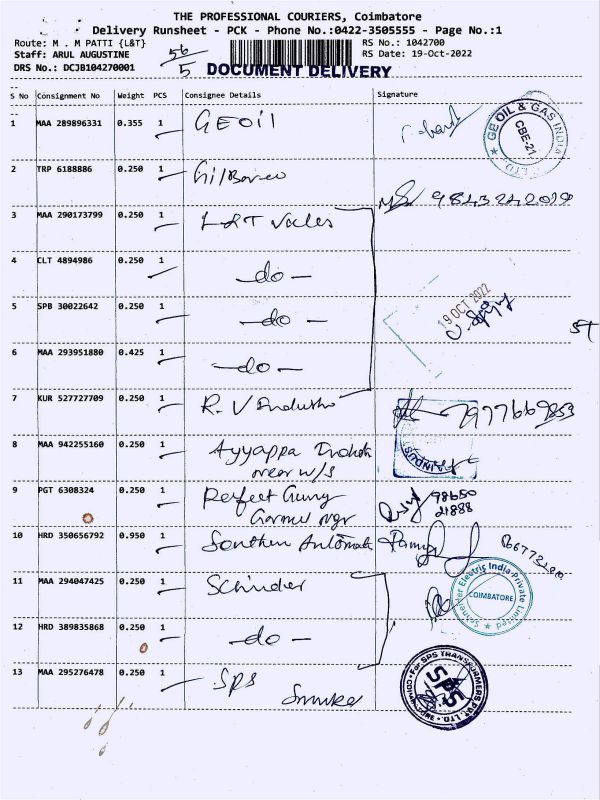 THE PROFESSIONAL COURIERS, Coimbatore
Delivery Runsheet - PCK - Phone No.:0422-3505555 - Page No.:1
Route: M . M PATTI {L&T} RS No.: 1042700
Staff: ARUL AUGUSTINE 56/5 RS Date: 19-Oct-2022
DRS No.: DCJB104270001 DOCUMENT DELIVERY
S No Consignment No Weight PCS Consignee Details Signature
1 MAA 289896331 0.355 1 GEOil
GE OIL & GAS INDIA
CBE-21
2 TRP 6188886 0.250 1
3 MAA 290173799 0.250 1 L&T Valves
4 CLT 4894986 0.250 1 -do-
19 OCT 2022
5 SPB 30022642 0.250 1 -do-
6 MAA 293951880 0.425 1 -do-
7 KUR 527727709 0.250 1 R. V Industri
8 MAA 942255160 0.250 1 Ayyappa
near w/s
9 PGT 6308324 0.250 1 Perfect 98650
21888
10 HRD 350656792 0.950 1 Southern Automati
11 MAA 294047425 0.250 1
Schneider Electric India Private Limited
COIMBATORE
12 HRD 389835868 0.250 1 -do-
13 MAA 295276478 0.250 1 SPS
For SPS TRANSFORMERS PVT. LTD.
SPS